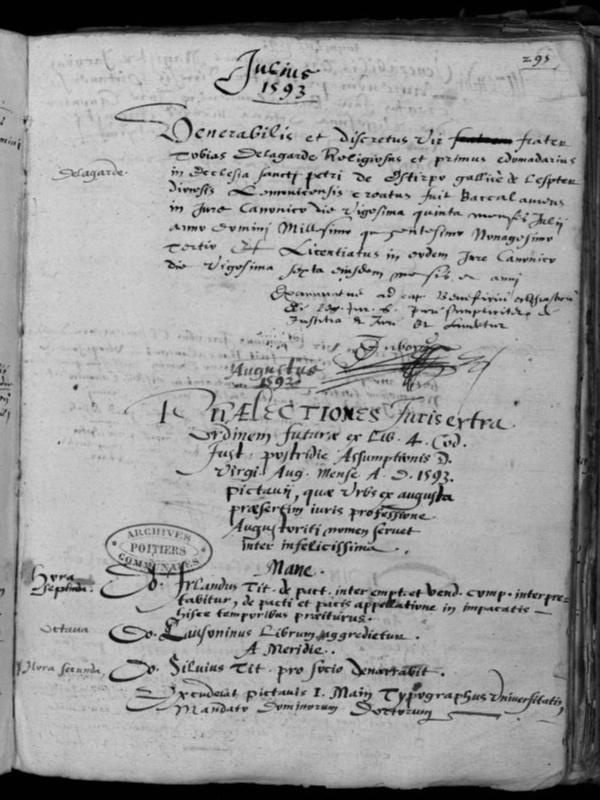 295
Julius
1593
Venerabilis et discretus vir frater
delagarde.
Tobias Delagarde Religiosus et primus edomadarius
in Ecclesia sancti petri de Stirpo gallice de Lespter
diocesis Lemovicensis creatus fuit Baccalaureus
in Jure Canonico die vigesima quinta mensis Julii
anno domini Millesimo quingentesimo Nonagesimo
Tertio Et Licentiatus in eodem Jure Canonico
die vigesima sexta eiusdem mensis et anni
Examinatus ad cap.
Justitia & Jure
Augustus
1593
PRÆLECTIONES Juris extra
ordinem futuræ ex Lib. 4. Cod.
Just. postridie Assumptionis D.
Virgi. Aug. Mense A. D. 1593.
pictavii, quæ Vrbs ex augusta
præsertim iuris professione
Augustoriti nomen servet
inter infelicissima.
ARCHIVES
POITIERS
COMMUNALES
Mane.
Hora septima.
Do. Irlandus Tit. de pact. inter empt. et vend. comp. interpre-
tabitur, de pacti et pacis appellatione in impacatis
hisce temporibus præiturus.
octava
Do. Lausoninus Librum aggredietur.
A Meridie.
Hora secunda.
Do. Silvius Tit. pro socio denarrabit.
Excudebat pictavis I. Main Typographus Universitatis,
Mandato Dominorum Doctorum